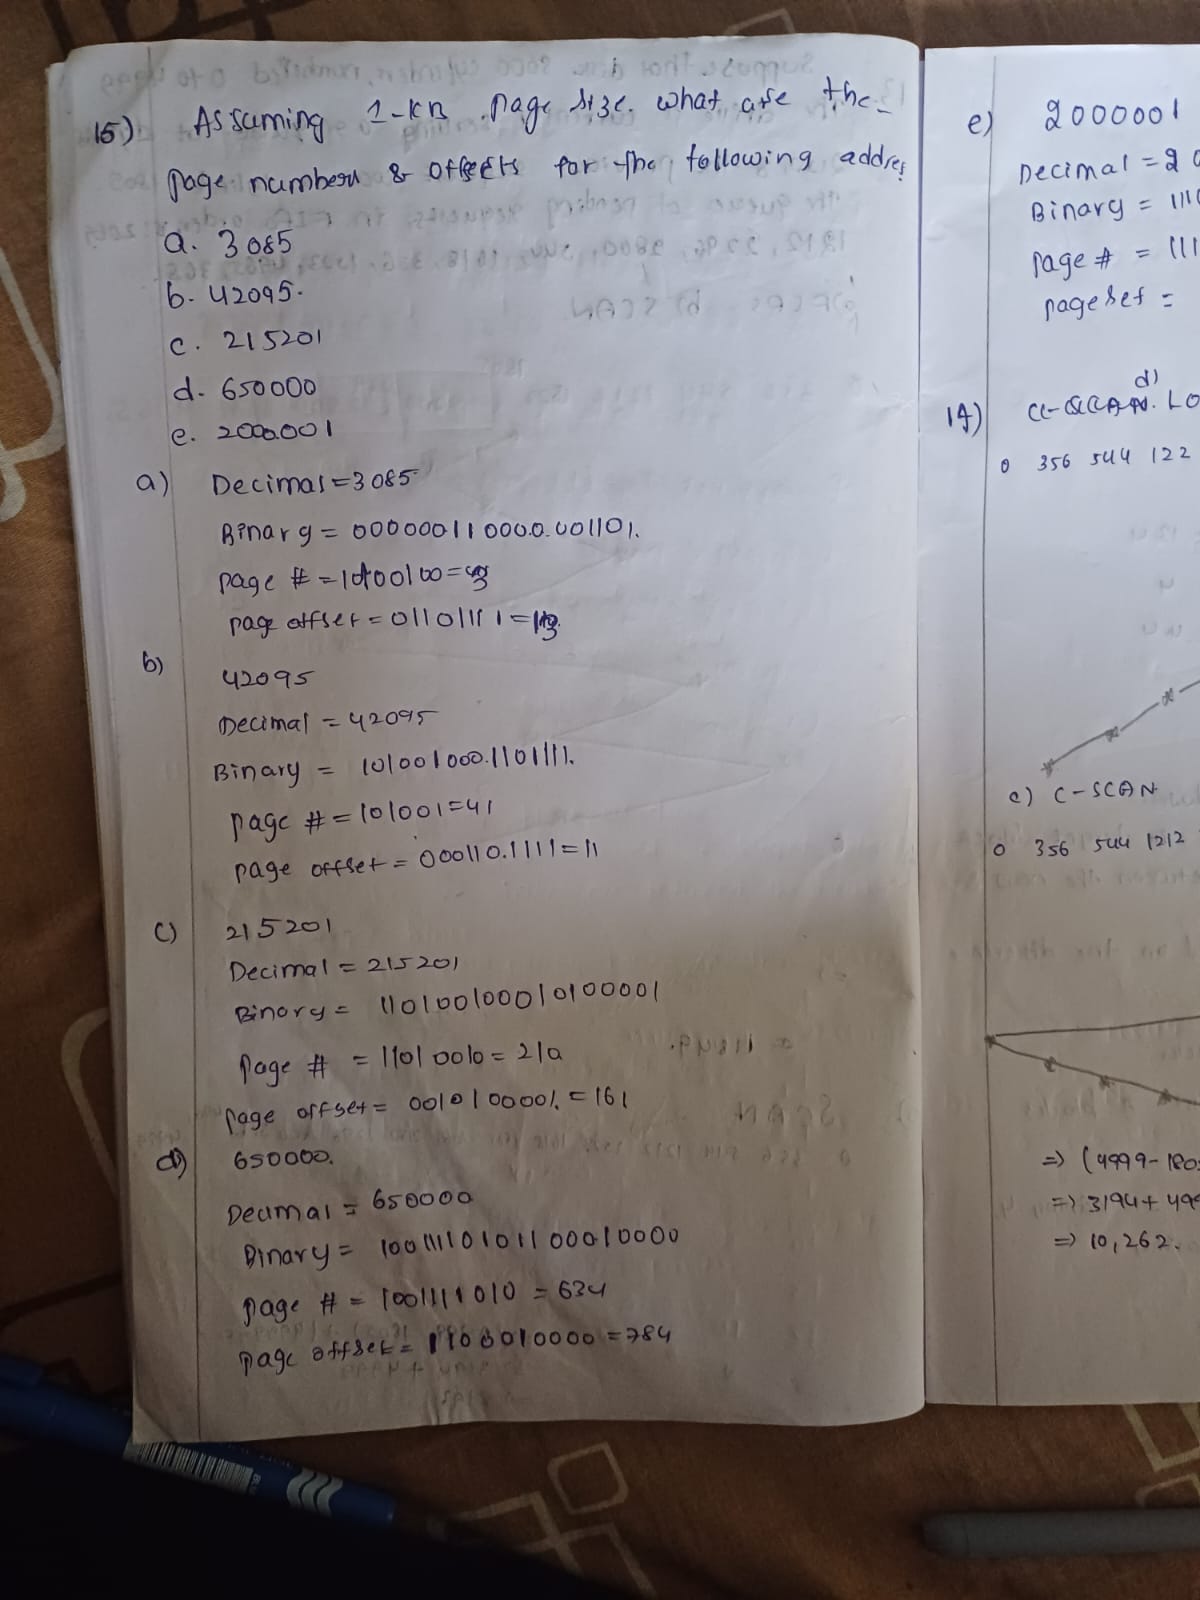 15) Assuming 1-KB page size. what are the
page numbers & offsets for the following addres
a. 3085
b. 42095.
c. 215201
d. 650000
e. 2000001
a) Decimal = 3085
Binary = 000000110000.001101.
page # =
page offset = 011011111 =
b) 42095
Decimal = 42095
Binary = 101001000.1101111.
page # = 101001 = 41
page offset = 000110.1111 = 11
c) 215201
Decimal = 215201
Binary = 110100100010100001
page # = 11010010 = 210
page offset = 0010100001. = 161
d) 650000.
Decimal = 650000
Binary = 10011110101100010000
page # = 1001111010 = 634
page offset = 1100010000 = 784
e) 2000001
Decimal = 20
Binary = 111
page # = 111
pageset =
d)
14) C-SCAN. LO
0 356 544 122
e) C-SCAN
0 356 544 1212
=> (4999-180
=> 3194 + 499
=> 10,262.